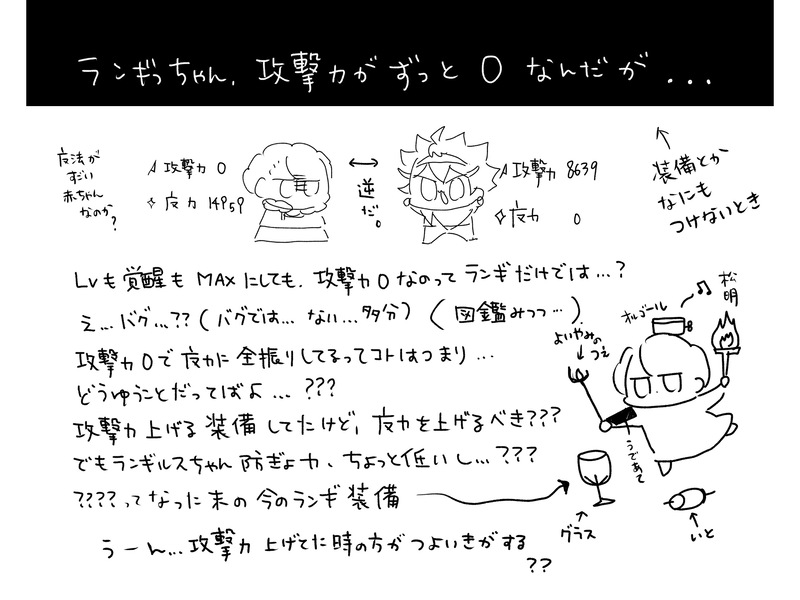 ランギっちゃん、攻撃力がずっと0なんだが...
魔法が
すごい
赤ちゃん
なのか?
攻撃力 0
魔力 14959
逆だ。
攻撃力 8639
魔力 0
↑
装備とか
なにも
つけないとき
Lvも覚醒もMAXにしても、攻撃力0なのってランギだけでは...?
え...バグ...??(バグでは...ない...多分)(図鑑みつつ...)
攻撃力0で魔力に全振りしてるってコトはつまり...
どうゆうことだってばよ...???
攻撃力上げる装備してたけど、魔力を上げるべき???
でもランギルスちゃん防ぎょ力、ちょっと低いし...???
????ってなった末の今のランギ装備
うーん...攻撃力上げてた時の方がつよいきがする
??
オルゴール
松明
よいやみの
つえ
うであて
グラス
いと